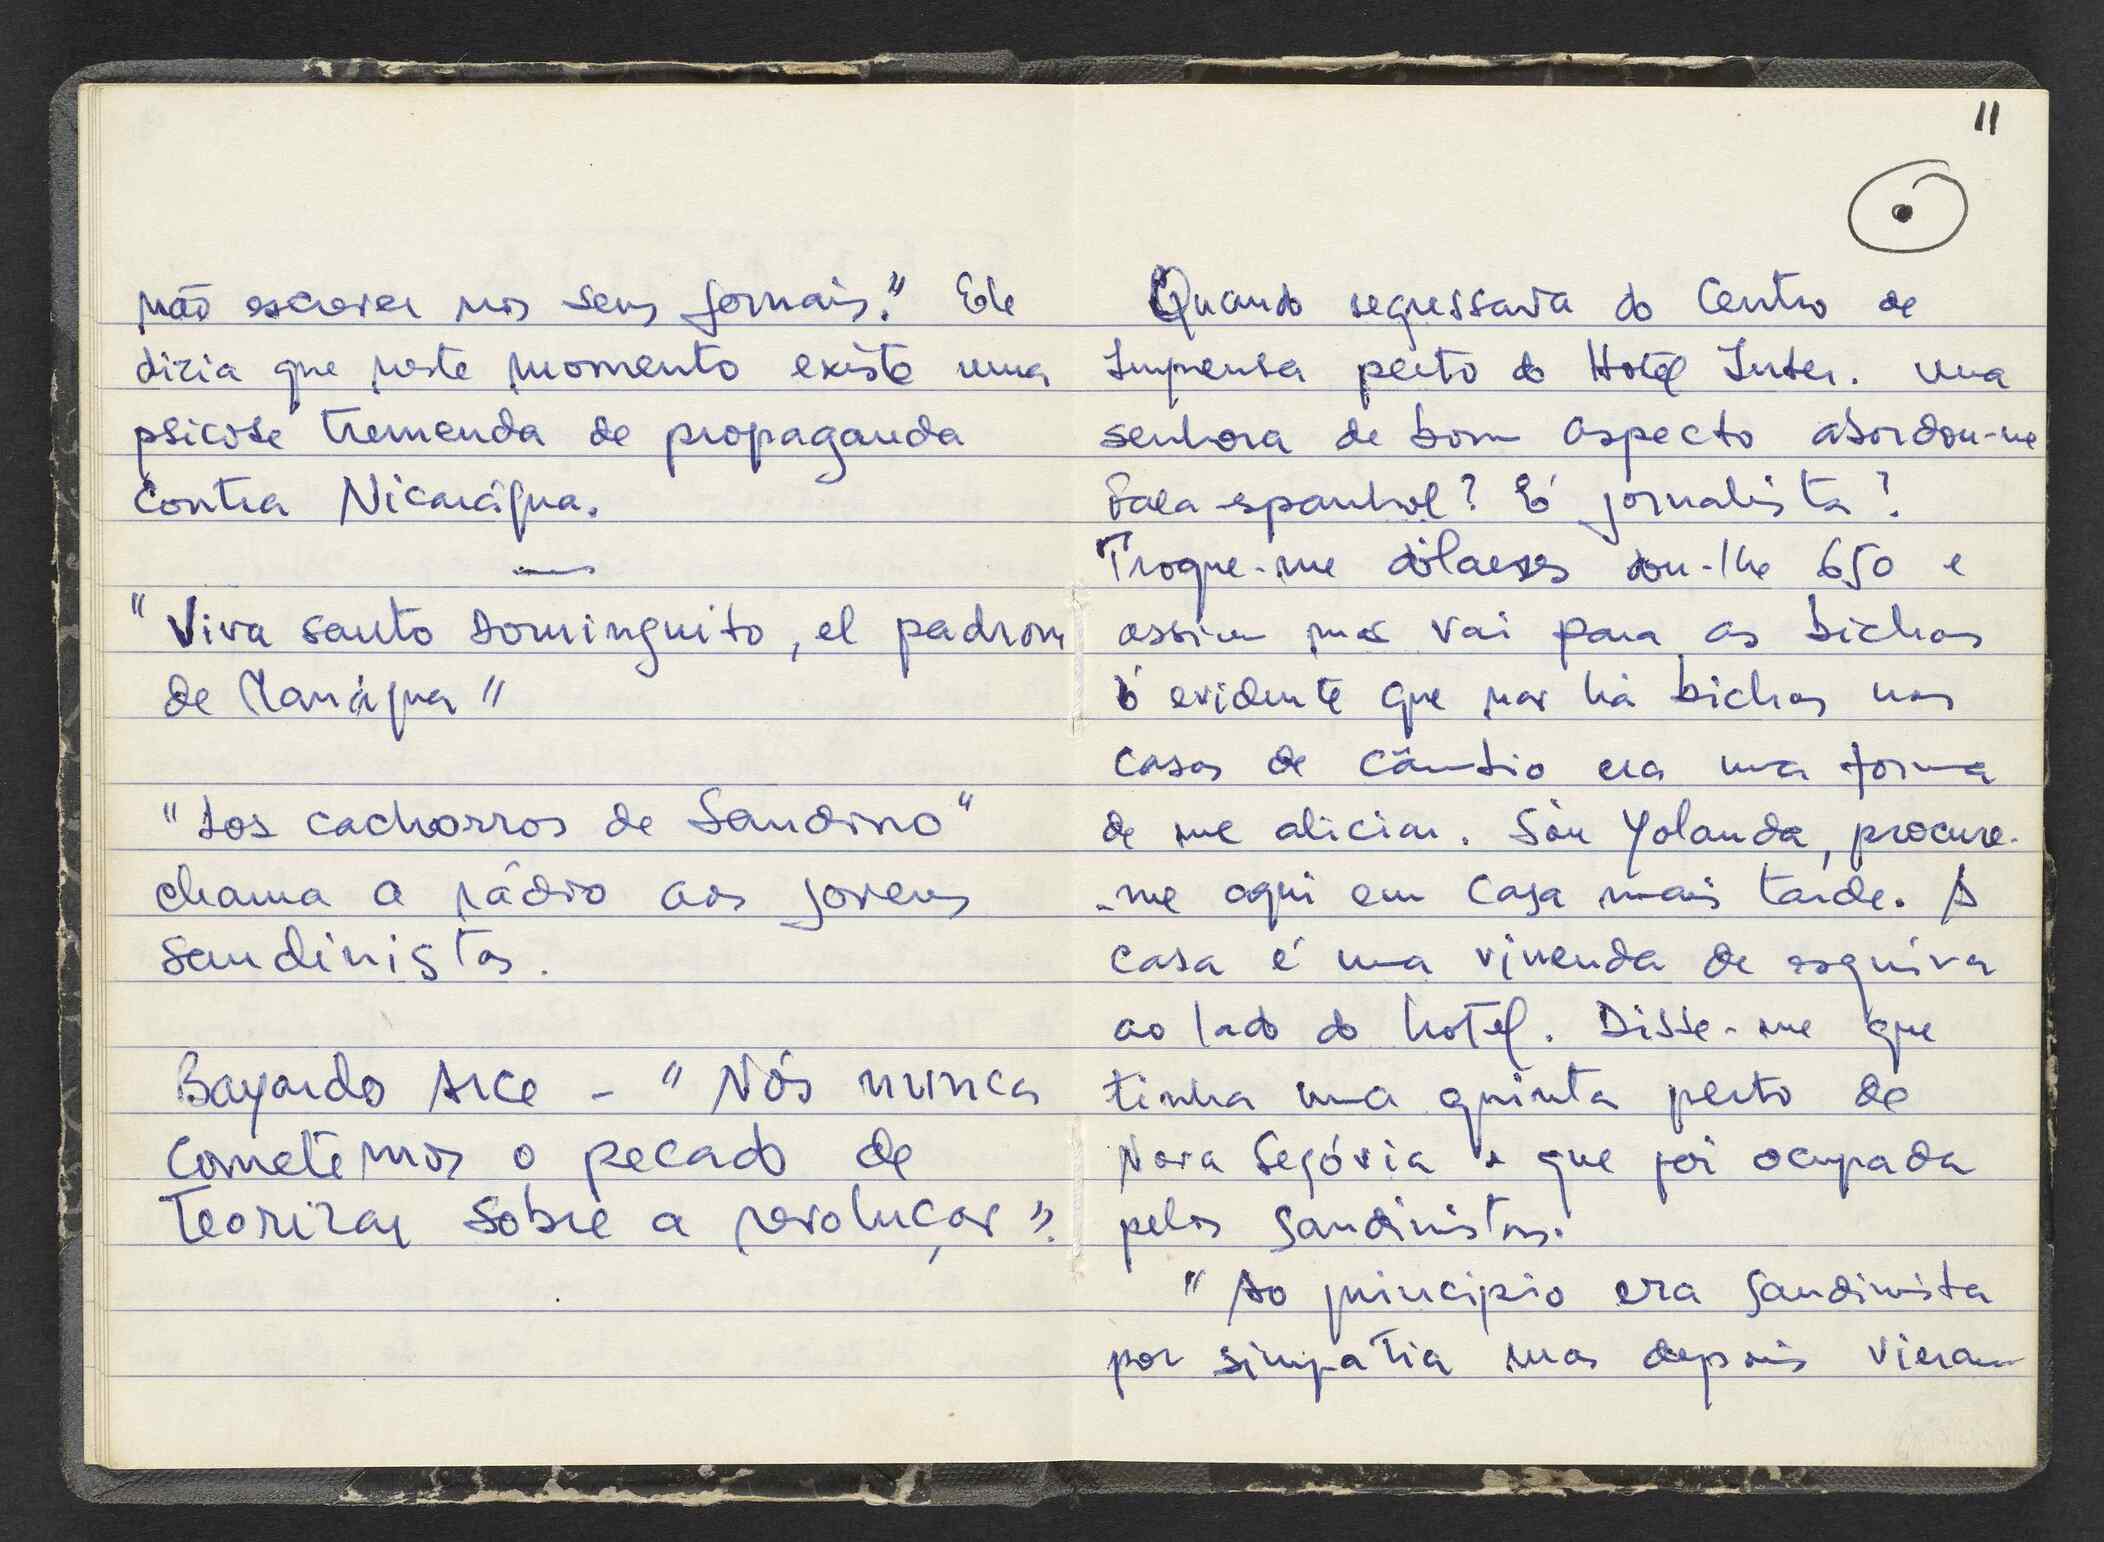 não escrever nos seus jornais." Ele
diria que neste momento existe uma
psicose tremenda de propaganda
contra Nicarágua.
"Viva santo Dominguito, el padrom
de Manágua"
"Los cachorros de Sandino"
chama a rádio aos jovens
sandinistas.
Bayardo Arce - "Nós nunca
cometemos o pecado de
teorizar sobre a revolução".
11
Quando regressava do Centro de
Imprensa perto do Hotel Inter. uma
senhora de bom aspecto abordou-me
Fala espanhol? É jornalista?
Troque-me dólares dou-lhe 650 e
assim não vai para as bichas
É evidente que não há bichas nas
casas de câmbio era uma forma
de me aliciar. Sou Yolanda, procure-
-me aqui em casa mais tarde. A
casa é uma vivenda de esquina
ao lado do hotel. Disse-me que
tinha uma quinta perto de
Nova Segóvia e que foi ocupada
pelos sandinistas.
"Ao princípio era sandinista
por simpatia mas depois vieram